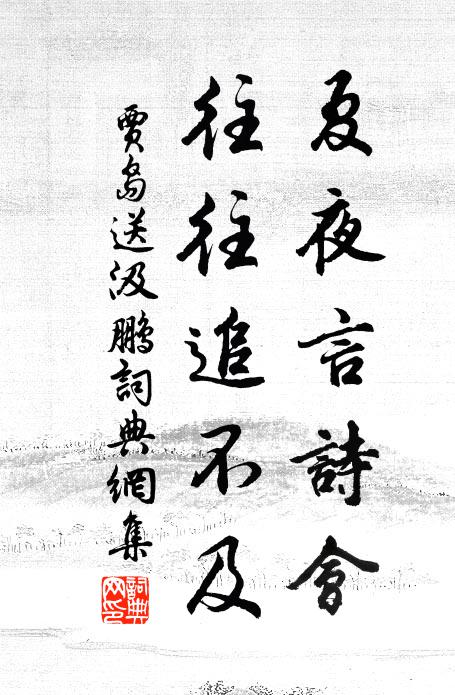 夏夜言詩會
往往追不及
賈島送汲鵬詞典網集
詞典網印